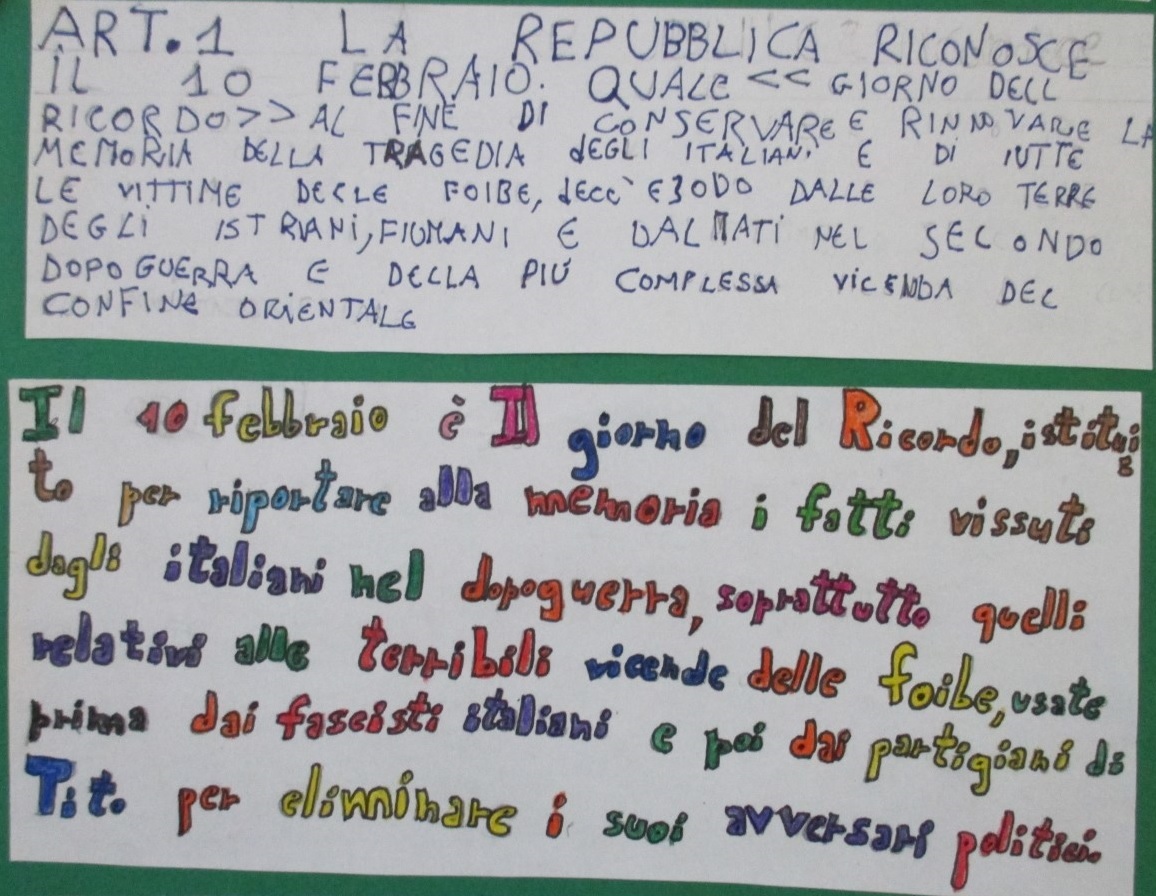 ART.1 LA REPUBBLICA RICONOSCE
IL 10 FEBBRAIO. QUALE << GIORNO DELL
RICORDO>> AL FINE DI CONSERVARE E RINNOVARE LA
MEMORIA DELLA TRAGEDIA dEGLI ITALIANI E DI TUTTE
LE VITTIME DELLE FOIBE, dELL' ESODO DALLE LORO TERRE
DEGLI ISTRIANI, FIUMANI E DALMATI NEL SECONDO
DOPOGUERRA E DELLA PIÚ COMPLESSA VICENDA DEL
CONFINE ORIENTALE
Il 10 febbraio è Il giorno del Ricordo, istitui
to per riportare alla memoria i fatti vissuti
dagli italiani nel dopoguerra, soprattutto quelli
relativi alle terribili vicende delle foibe, usate
prima dai fascisti italiani e poi dai partigiani di
Tito per elimminare i suoi avversari politici.